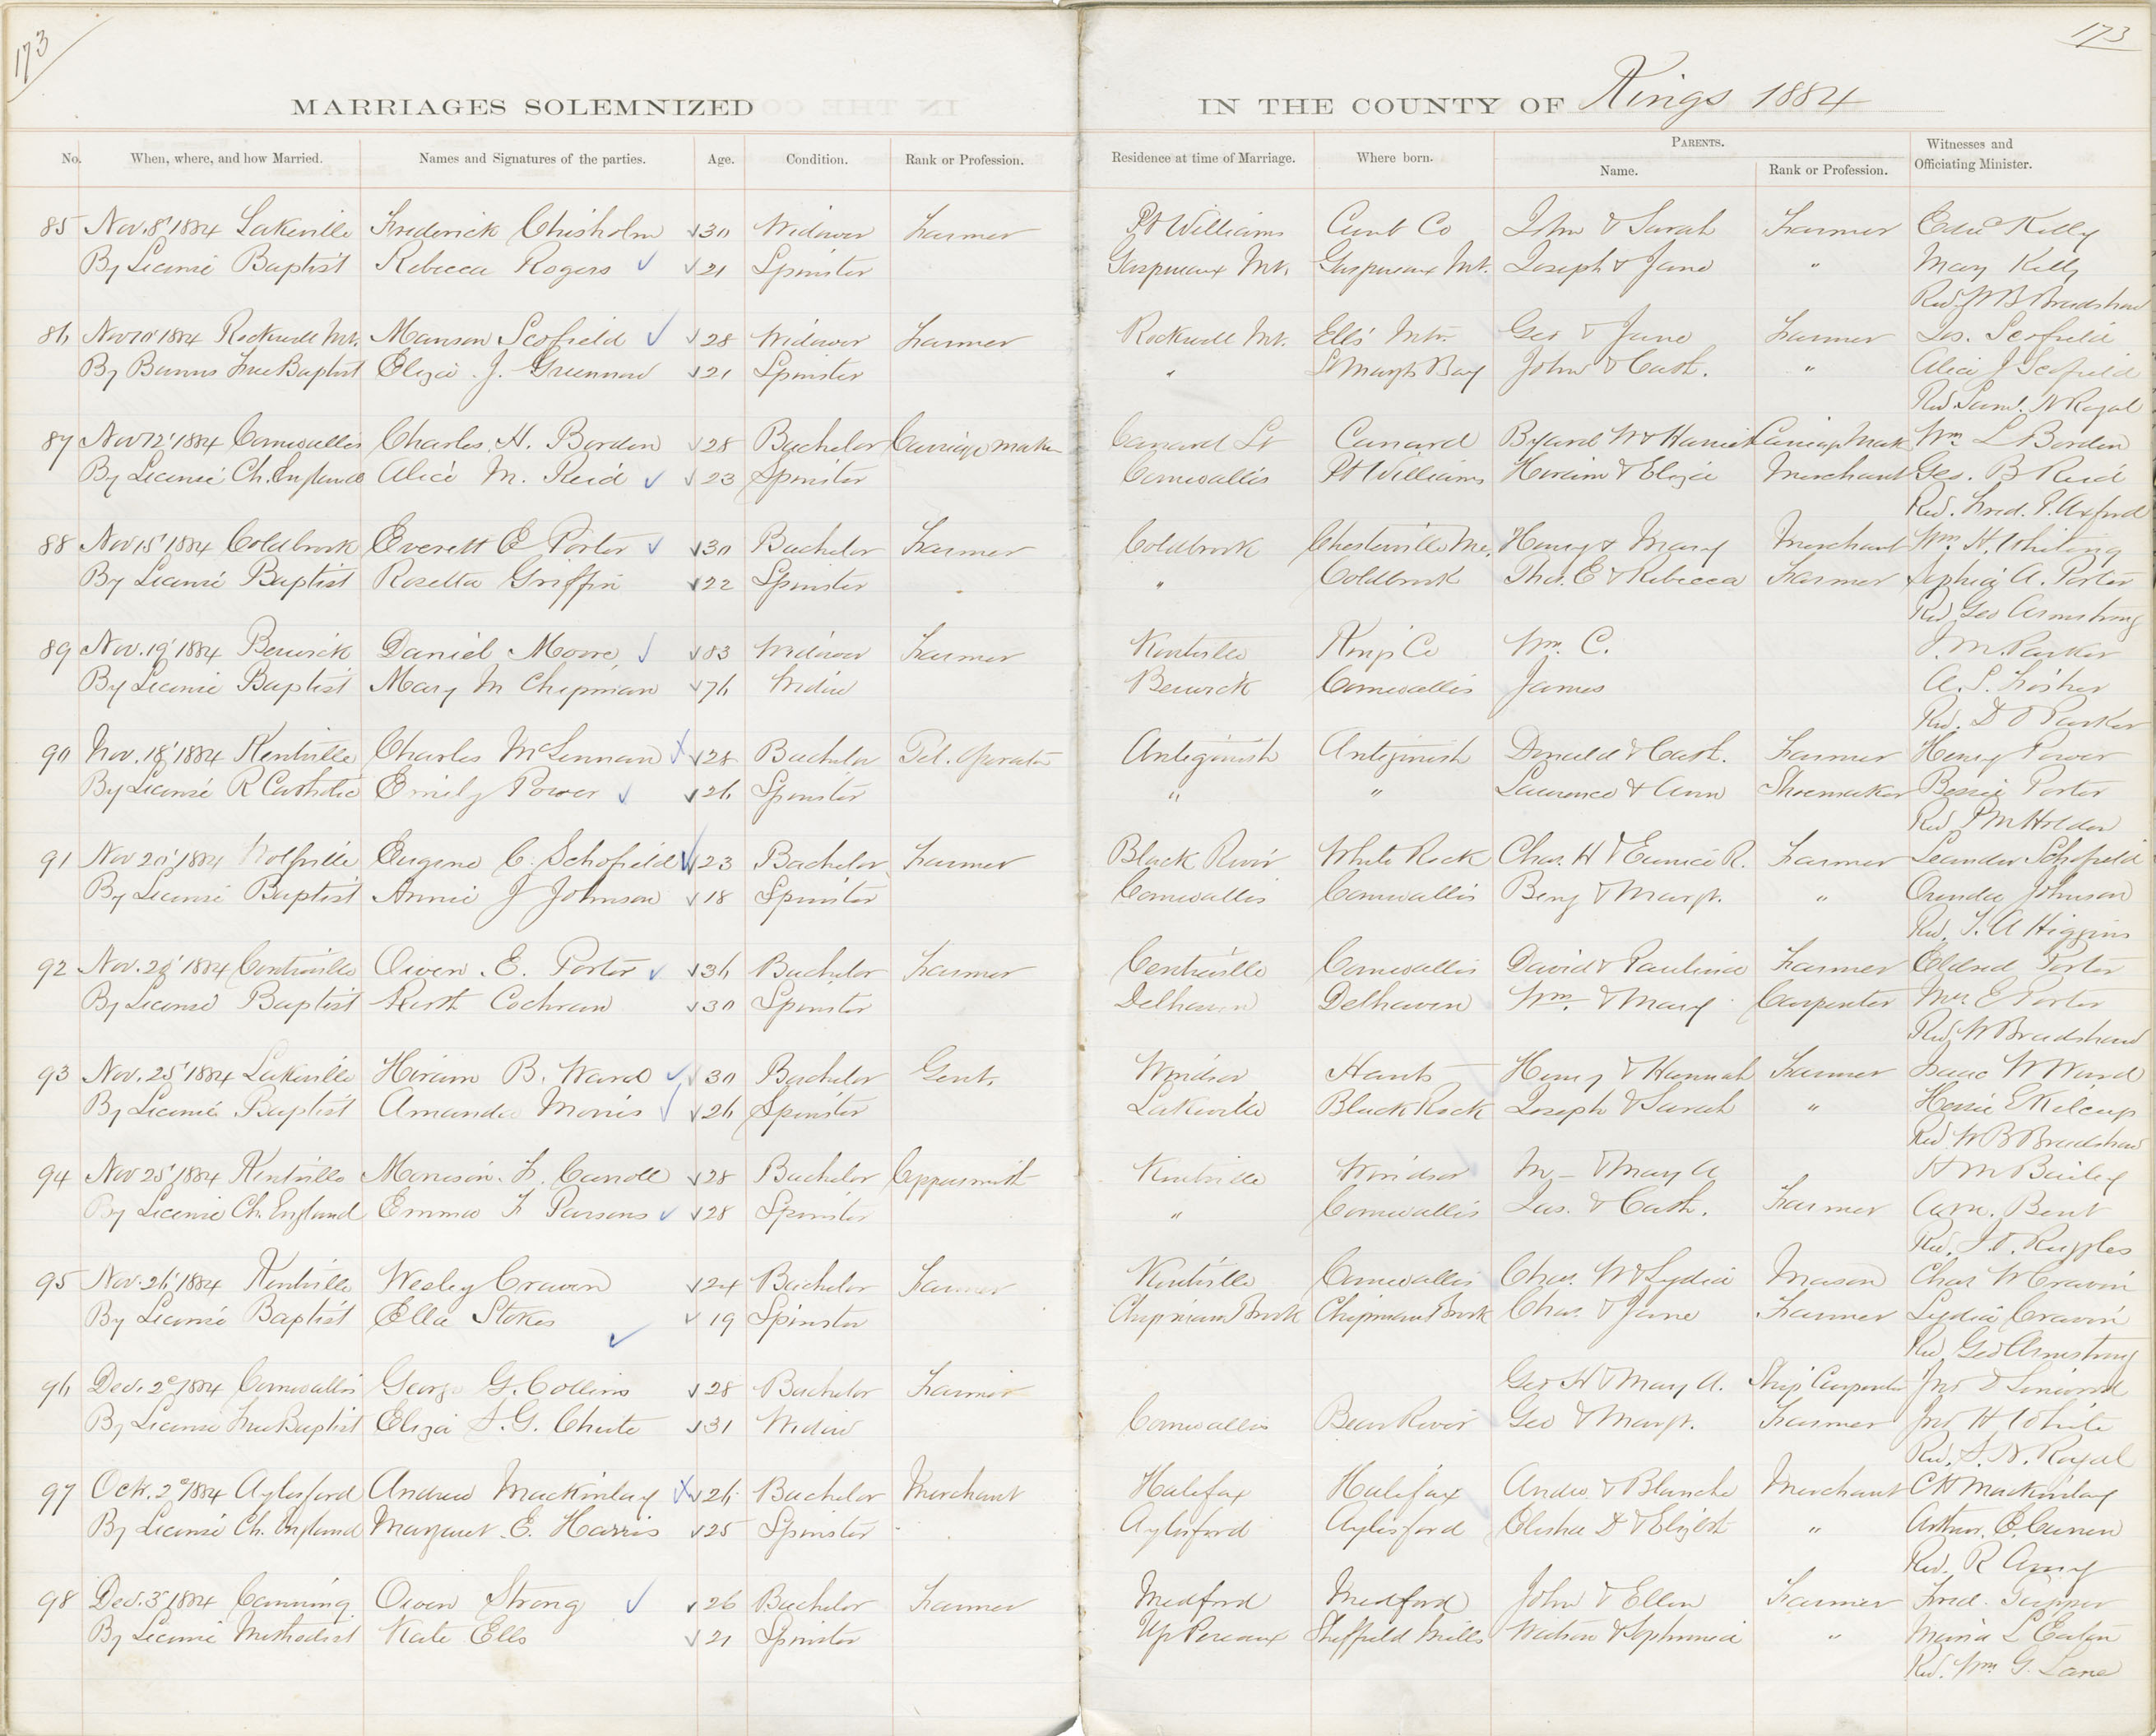 173
173
MARRIAGES SOLEMNIZED
IN THE COUNTY OF Kings 1884
No. When, where, and how Married. Names and Signatures of the parties. Age. Condition. Rank or Profession. Residence at time of Marriage. Where born. PARENTS. Name. Rank or Profession. Witnesses and Officiating Minister.
85 Nov. 8' 1884 Lakeville Frederick Chisholm 30 Widower Farmer Pt Williams Cumb Co John & Sarah Farmer Kelly
By License Baptist Rebecca Rogers 21 Spinster Gaspereaux Mt. Gaspereaux Mt. Joseph & Jane " Mary Kelly
Rev. W B Bradshaw
86 Nov 10' 1884 Rockwell Mt. Manson Scofield 28 Widower Farmer Rockwell Mt. Ells' Mtn. Geo & Jane Farmer Jas. Scofield
By Banns Free Baptist Eliza J. Greenwood 21 Spinster " St Mary's Bay John & Cath. " Alice J Scofield
Rev. Saml. N Royal
87 Nov 12' 1884 Cornwallis Charles H. Borden 28 Bachelor Carriage maker Canard St Canard Byard W & Harriet Carriage Mak Wm L Borden
By License Ch. England Alice M. Reid 23 Spinster Cornwallis Pt Williams Hiram & Eliza Merchant Geo. B Reid
Rev. Fred. P. Axford
88 Nov 15' 1884 Coldbrook Everett E Porter 30 Bachelor Farmer Coldbrook Chesterville Me. Henry & Mary Merchant Wm. H. Whiting
By License Baptist Rosetta Griffin 22 Spinster " Coldbrook Thos. E & Rebecca Farmer Sophia A. Porter
Rev Geo Armstrong
89 Nov. 19' 1884 Berwick Daniel Moore 83 Widower Farmer Kentville Kings Co Wm. C. J. M. Parker
By License Baptist Mary M Chipman 76 Widow Berwick Cornwallis James A. S. Fisher
Rev. D O Parker
90 Nov. 18' 1884 Kentville Charles McLennan 28 Bachelor Tel. Operator Antigonish Antigonish Donald & Cath. Farmer Henry Power
By License R Catholic Emily Power 26 Spinster " " Laurence & Ann Shoemaker Bessie Porter
Rev P M Holden
91 Nov 20' 1884 Wolfville Eugene C. Schofield 23 Bachelor Farmer Black River White Rock Chas. H & Eunice R. Farmer Leander Schofield
By License Baptist Annie J Johnson 18 Spinster Cornwallis Cornwallis Benj & Margt. " Johnson
Rev. T. A Higgins
92 Nov. 1884 Centreville Owen E. Porter 36 Bachelor Farmer Centreville Cornwallis David & Paulina Farmer Eldred Porter
By License Baptist Ruth Cochran 30 Spinster Delhaven Delhaven Wm. & Mary Carpenter Mrs. E Porter
Rev W Bradshaw
93 Nov. 25' 1884 Lakeville Hiram B. Ward 30 Bachelor Gent. Windsor Hants Henry & Hannah Farmer Isaac W Ward
By License Baptist Amanda Morris 26 Spinster Lakeville Black Rock Joseph & Sarah " E Kilcup
Rev W B Bradshaw
94 Nov 25' 1884 Kentville F. Carroll 28 Bachelor Coppersmith Kentville Windsor M— & Mary A H M Bailey
By License Ch. England Emma F Parsons 28 Spinster " Cornwallis Jas. & Cath. Farmer Bent
Rev. J. O. Ruggles
95 Nov. 26' 1884 Kentville Wesley Craven 24 Bachelor Farmer Kentville Cornwallis Chas. W & Lydia Mason Chas W Craven
By License Baptist Ella Stokes 19 Spinster Chipmans Brook Chipmans Brook Chas. & Jane Farmer Lydia Craven
Rev Geo Armstrong
96 Dec. 2d 1884 Cornwallis George G. Collins 28 Bachelor Farmer Geo H & Mary A. Ship Carpenter
By License Free Baptist Eliza S. G. Chute 31 Widow Cornwallis Bear River Geo & Margt. Farmer Jno H White
Rev. S. N. Royal
97 Oct. 2d 1884 Aylesford Andrew Mackinlay 26 Bachelor Merchant Halifax Halifax Andw. & Blanche Merchant Mackinlay
By License Ch. England Margaret E. Harris 25 Spinster Aylesford Aylesford Elisha D & Elizbth " Arthur. E. Curren
Rev. R Avery
98 Dec. 3' 1884 Canning Owen Strong 26 Bachelor Farmer Medford Medford John & Ellen Farmer Fred. Tupper
By License Methodist Kate Ells 21 Spinster Up Pereaux Sheffield Mills Watson & Sophronia " L Eaton
Rev. Wm. G. Lane